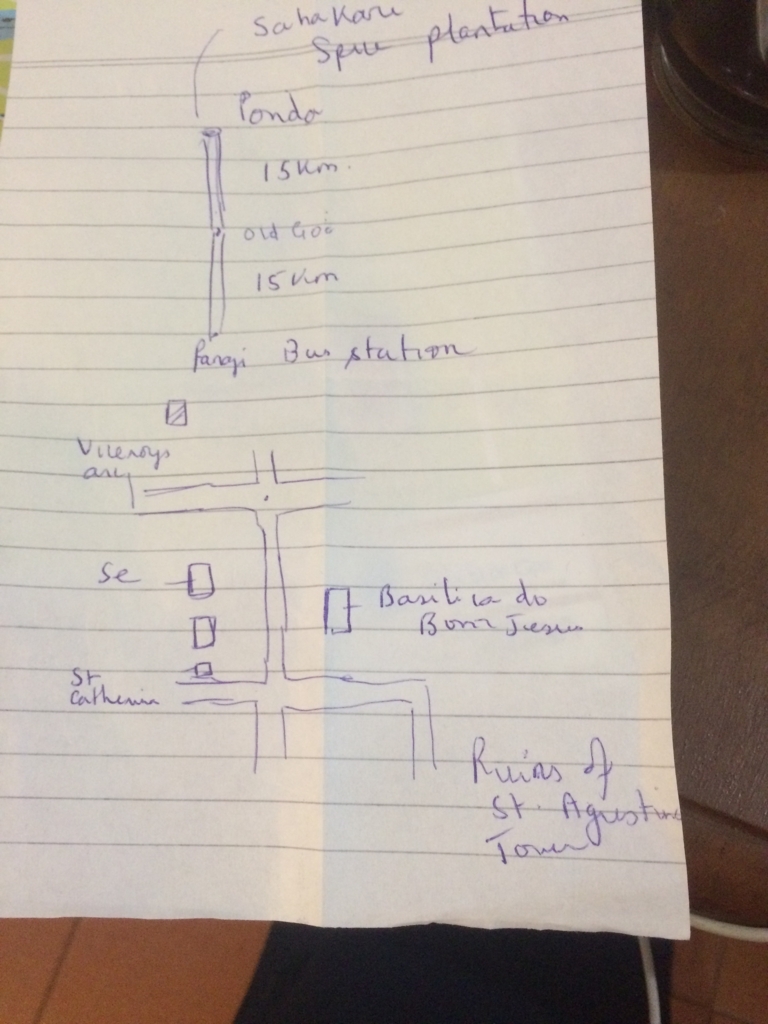 Sahakari
Spice plantation
Ponda
15 Km.
Old Goa
15 Km
Panaji Bus station
Viceroys
arc
Se
Basilica do
Bom Jesus
St
Catherin
Ruins of
St. Agustine
Tower